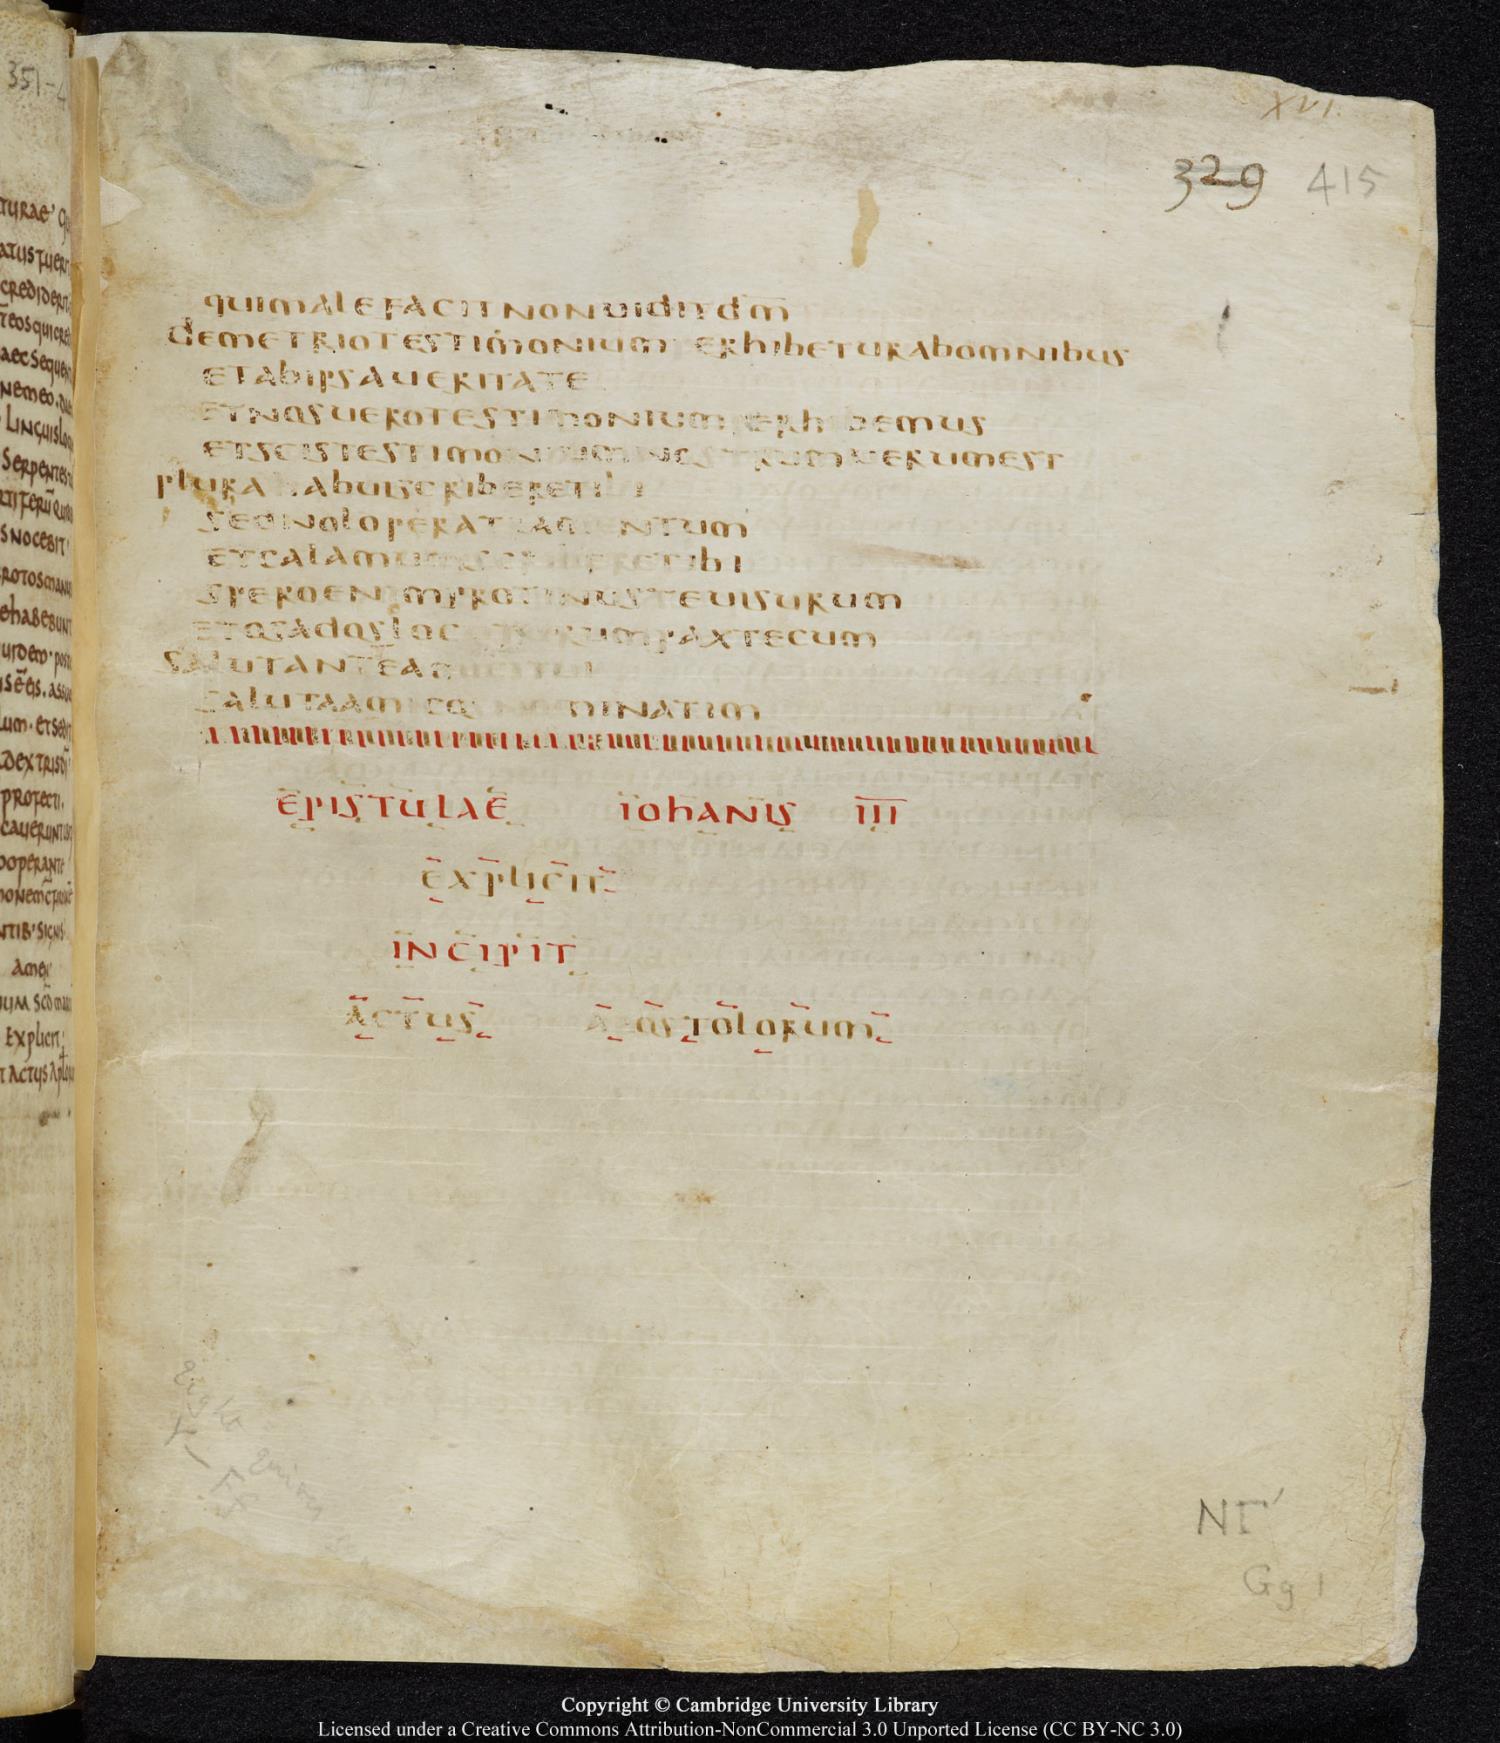 XVI.
329 415
quimalefacitnonuiditdm̄
demetriotestimonium exhibeturabomnibus
etabipsaueritate
etnosuerotestimonium perhibemus
etscistestimoniumnostrumuerumest
plurahabuiscriberetibi
sednoloperatramentum
etcalamum scribere tibi
speroenimprotinusteuisurum
etosados locuturum paxtecum
salutantteamici tui
salutaamicos nominatim
epistulae iohanis III
explicit
incipit
actus apostolorum
NT'
Gg 1
351-4
turae
atusfuerit
crediderit
linguis
serpentes
snocebit
ehabebunt
dextris
profecti
amen
explicit
actus
Copyright © Cambridge University Library
Licensed under a Creative Commons Attribution-NonCommercial 3.0 Unported License (CC BY-NC 3.0)